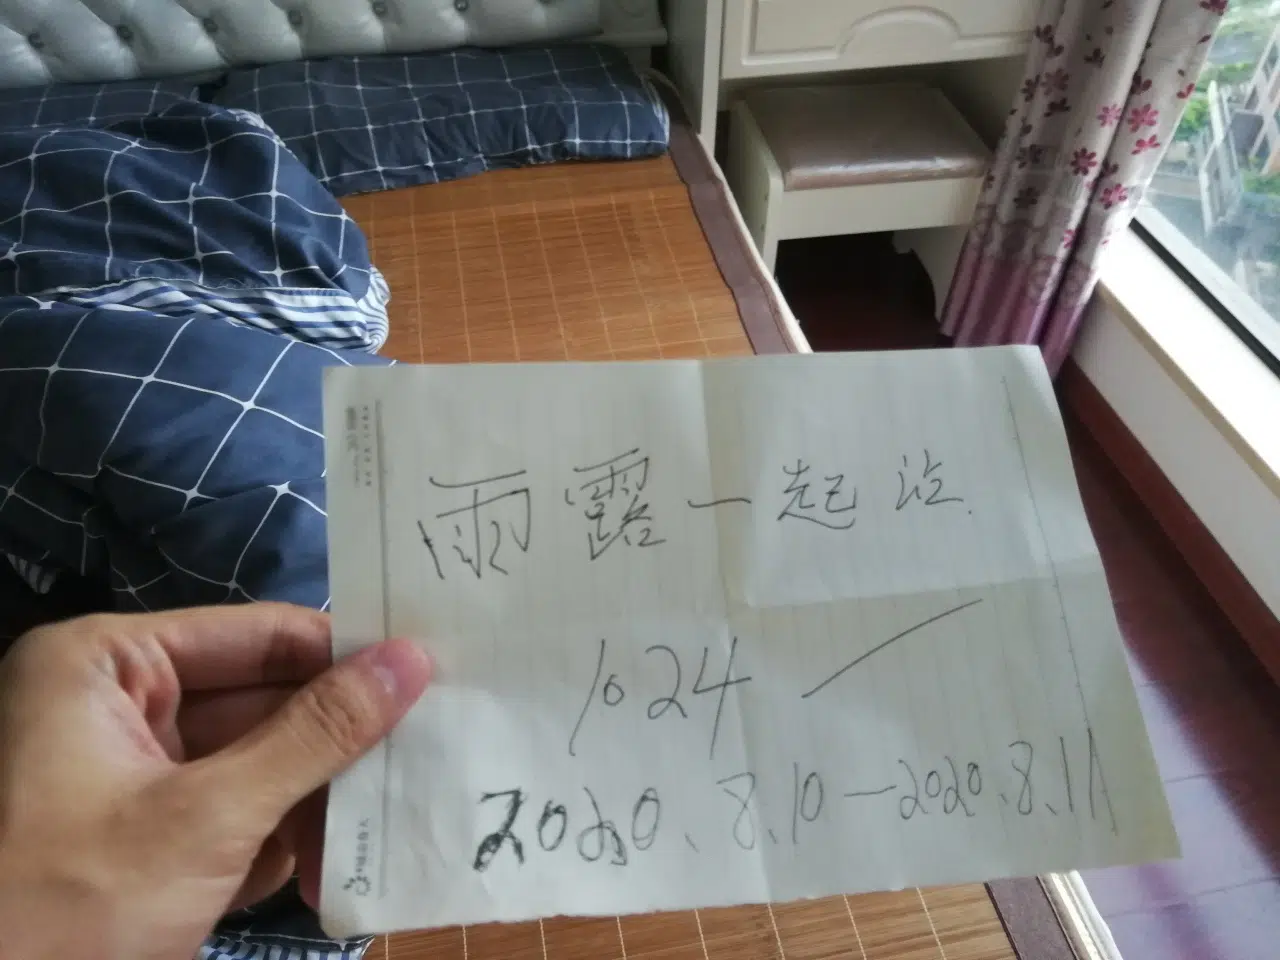 雨露一起论
1024
2020.8.10—2020.8.11